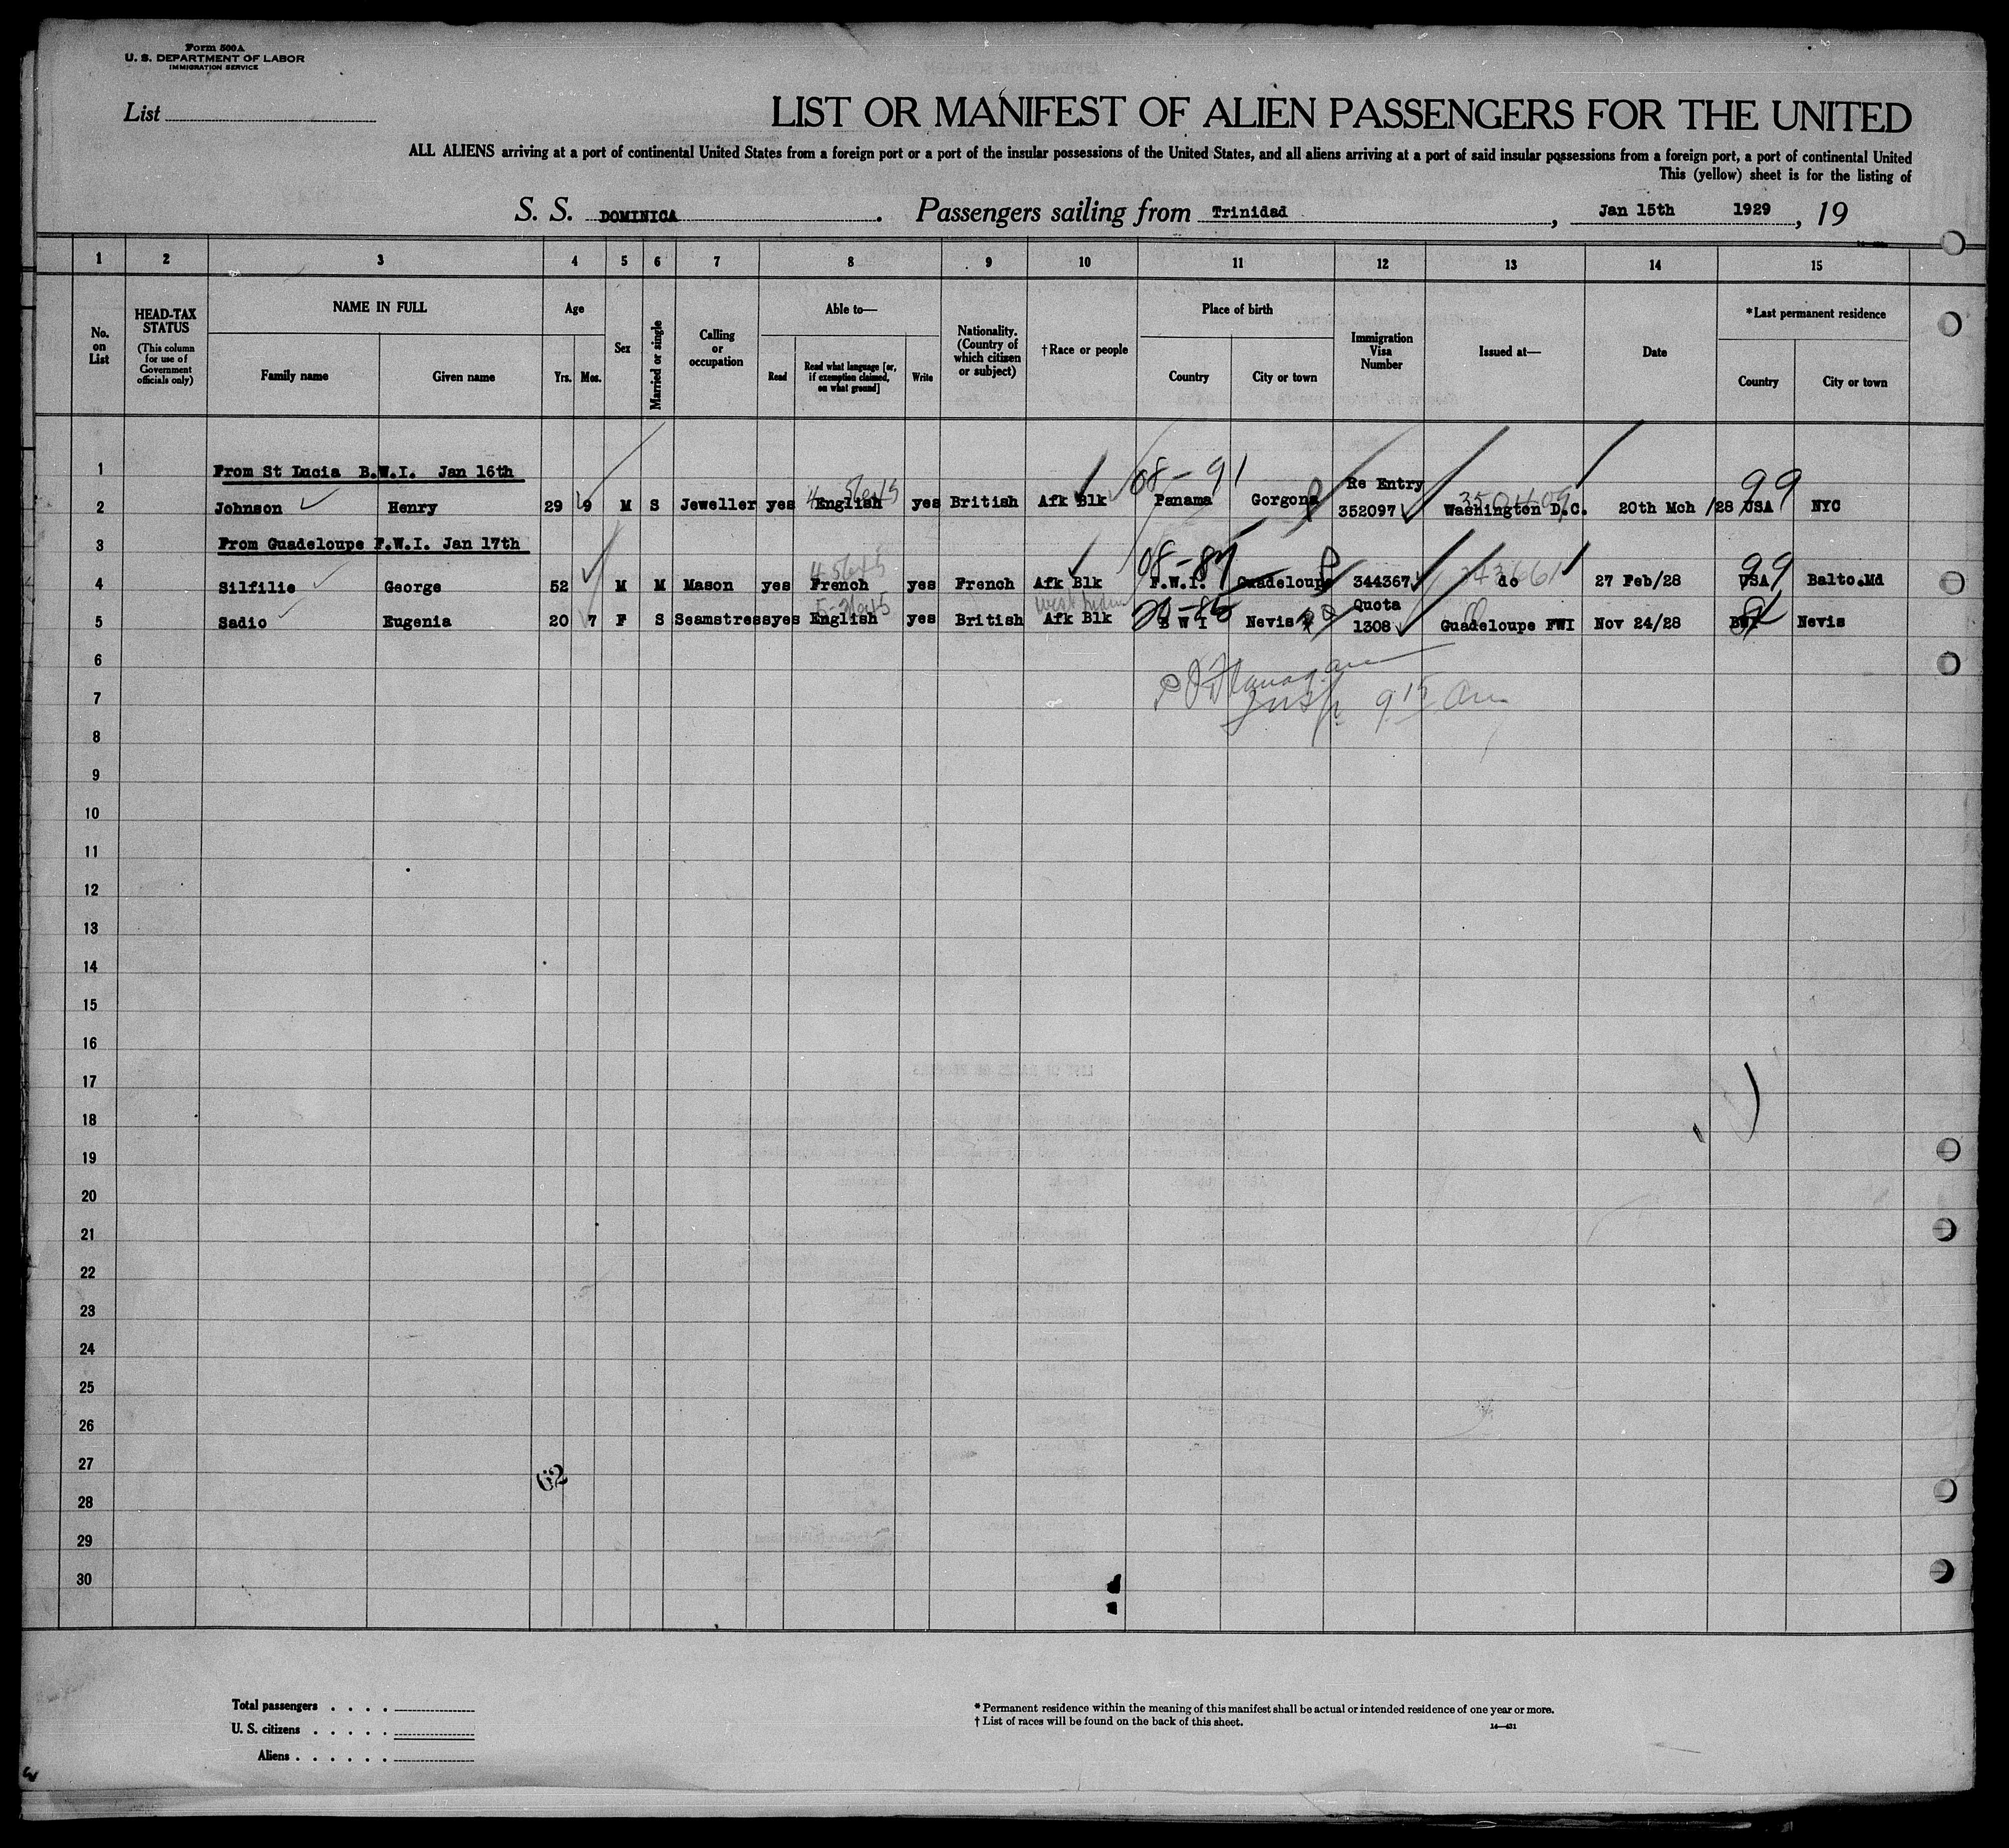 Form 500A
U. S. DEPARTMENT OF LABOR
IMMIGRATION SERVICE
List
LIST OR MANIFEST OF ALIEN PASSENGERS FOR THE UNITED
ALL ALIENS arriving at a port of continental United States from a foreign port or a port of the insular possessions of the United States, and all aliens arriving at a port of said insular possessions from a foreign port, a port of continental United
This (yellow) sheet is for the listing of
S. S. DOMINICA. Passengers sailing from Trinidad, Jan 15th 1929, 19
1 2 3 4 5 6 7 8 9 10 11 12 13 14 15
No. on List
HEAD-TAX STATUS (This column for use of Government officials only)
NAME IN FULL
Family name Given name
Age
Yrs. Mos.
Sex
Married or single
Calling or occupation
Able to—
Read Read what language [or, if exemption claimed, on what ground] Write
Nationality. (Country of which citizen or subject)
†Race or people
Place of birth
Country City or town
Immigration Visa Number
Issued at—
Date
*Last permanent residence
Country City or town
1 From St Lucia B.W.I. Jan 16th
08-91 Re Entry 350409 99
2 Johnson Henry 29 9 M S Jeweller yes English yes British Afk Blk Panama Gorgona 352097 Washington D.C. 20th Mch /28 USA NYC
3 From Guadeloupe F.W.I. Jan 17th
08-87 343661 99
4 Silfilie George 52 M M Mason yes French yes French Afk Blk F.W.I. Guadeloupe 344367 do 27 Feb/28 USA Balto.Md
West Indian Quota
5 Sadio Eugenia 20 7 F S Seamstress yes English yes British Afk Blk B W I Nevis 1308 Guadeloupe FWI Nov 24/28 BWI Nevis
6
7 Insp. 9 15 am
8
9
10
11
12
13
14
15
16
17
18
19
20
21
22
23
24
25
26
27
62
28
29
30
Total passengers . . . .
U. S. citizens . . . . .
Aliens . . . . . .
* Permanent residence within the meaning of this manifest shall be actual or intended residence of one year or more.
† List of races will be found on the back of this sheet.
14—431